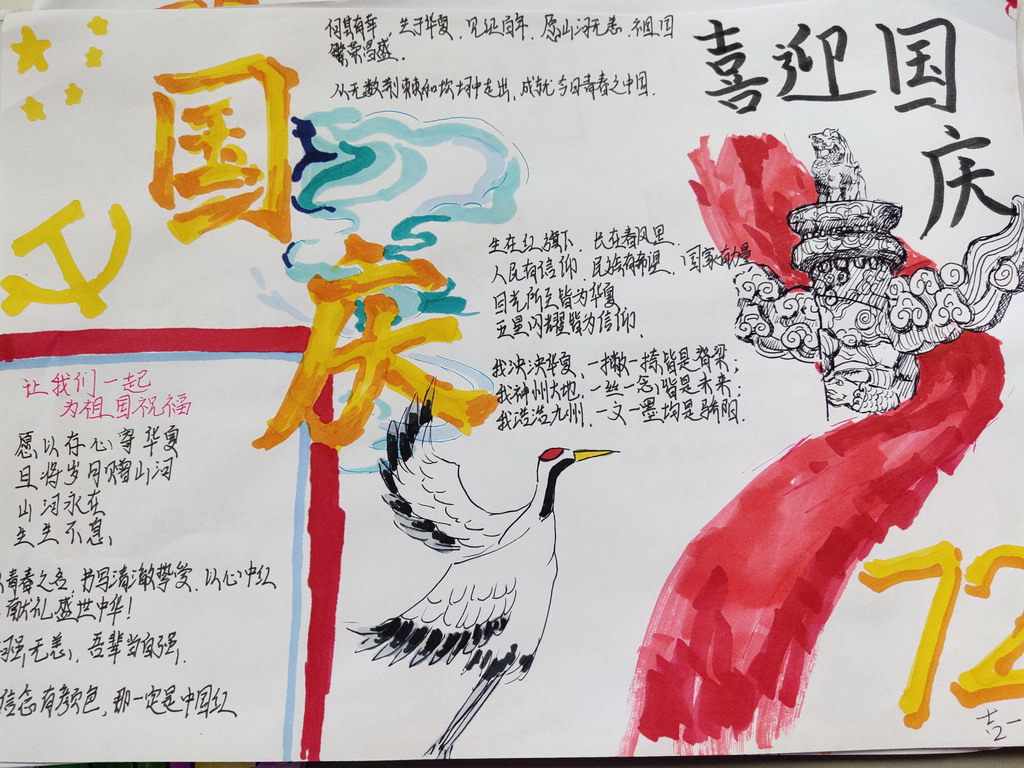 何其有幸，生于华夏，见证百年，愿山河无恙，祖国
繁荣昌盛．
从无数荆棘和坎坷中走出，成就今日青春之中国．
喜迎国
庆
国
庆
生在红旗下，长在春风里．
人民有信仰，民族有希望，国家有力量
目光所至皆为华夏
五星闪耀皆为信仰．
我泱泱华夏，一撇一捺皆是脊梁；
我神州大地，一丝一念皆是未来；
我浩浩九州，一文一墨均是骄阳．
让我们一起
为祖国祝福
愿以存心寄华夏
且将岁月赠山河
山河永在
生生不息，
青春之名，书写清澈挚爱，以心中红
献礼盛世中华！
无恙，吾辈当自强．
信念有颜色，那一定是中国红
72